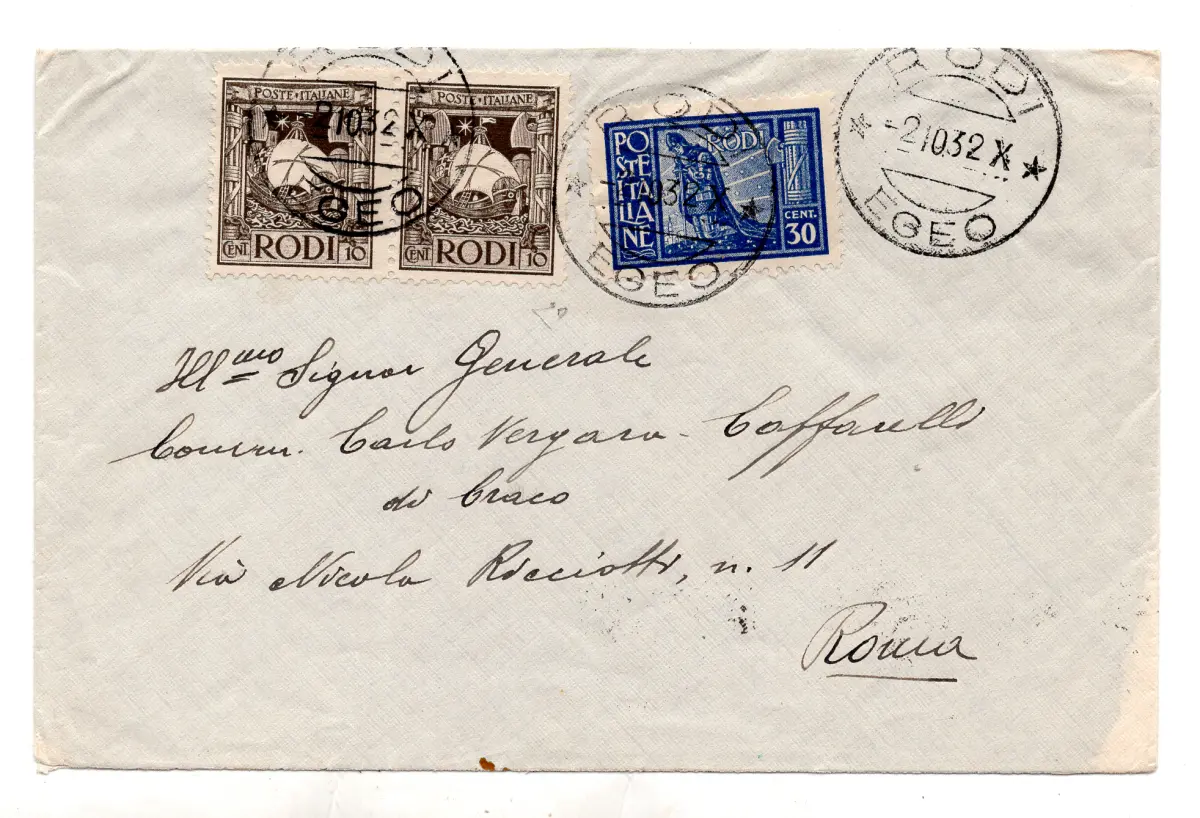 POSTE·ITALIANE
CENT. RODI 10
POSTE·ITALIANE
CENT. RODI 10
RODI
-2.10.32 X
EGEO
POSTE ITALIANE
RODI
CENT. 30
RODI
10.32 X
EGEO
RODI
-2.10.32 X
EGEO
Ill.mo Signor Generale
Comm. Carlo Vergara-Caffarelli
di Craco
Via Nicola Ricciotti, n. 11
Roma